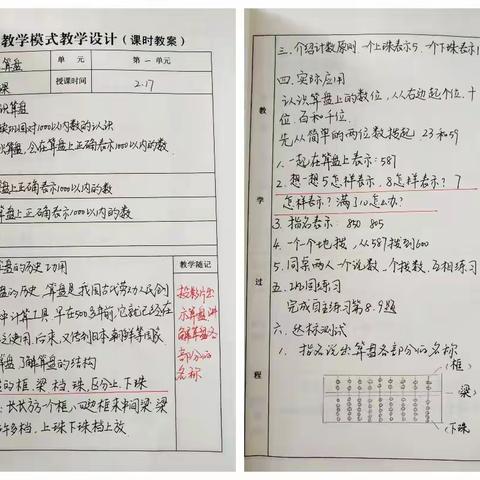 教学模式教学设计（课时教案）
算盘
单元
第一单元
课
授课时间
2.17
识算盘
1000以内数的认识
识算盘，会在算盘上正确表示1000以内的数
盘上正确表示1000以内的数
算盘上正确表示1000以内的数
教学随记
算盘的历史、功用
盘的历史，算盘是我国古代劳动人民创
计算工具，早在500多年前，它就已经在
使用，后来，又传到日本、朝鲜等国家
算盘，了解算盘的结构
的框、梁、档、珠，区分上、下珠
：长长方方一个框，四边框来中间梁，梁
许多档，上珠下珠档上放．
算盘讲
解算盘各
部分的
名称
教
学
过
程
三、介绍计数原则 一个上珠表示5，一个下珠表示1
四、实际应用
认识算盘上的数位，从右边起个位、十
位、百和千位．
先从简单的两位数拨起 23和59
1. 一起在算盘上表示：587
2. 想一想5怎样表示，8怎样表示？7
怎样表示？满了10怎么办？
3. 指名表示：850 805
4. 一个一个地拨，从587拨到600
5. 同桌两人一个说数，一个拨数，互相练习
五、巩固练习
完成自主练习第8、9题
六、达标测试
1. 指名说出算盘各部分的名称
（框）
梁）
（下珠